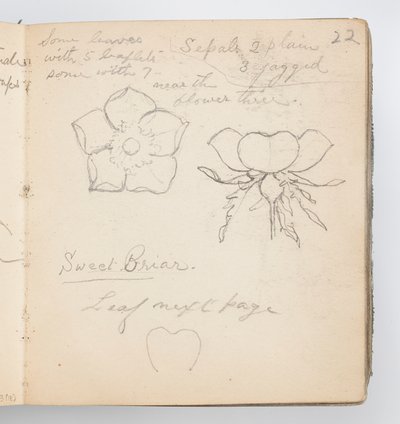 Some leaves
with 5 leaflets
some with 7.
near the
flower three.
Sepals 2 plain
3 jagged
22
Sweet Briar.
Leaf next page